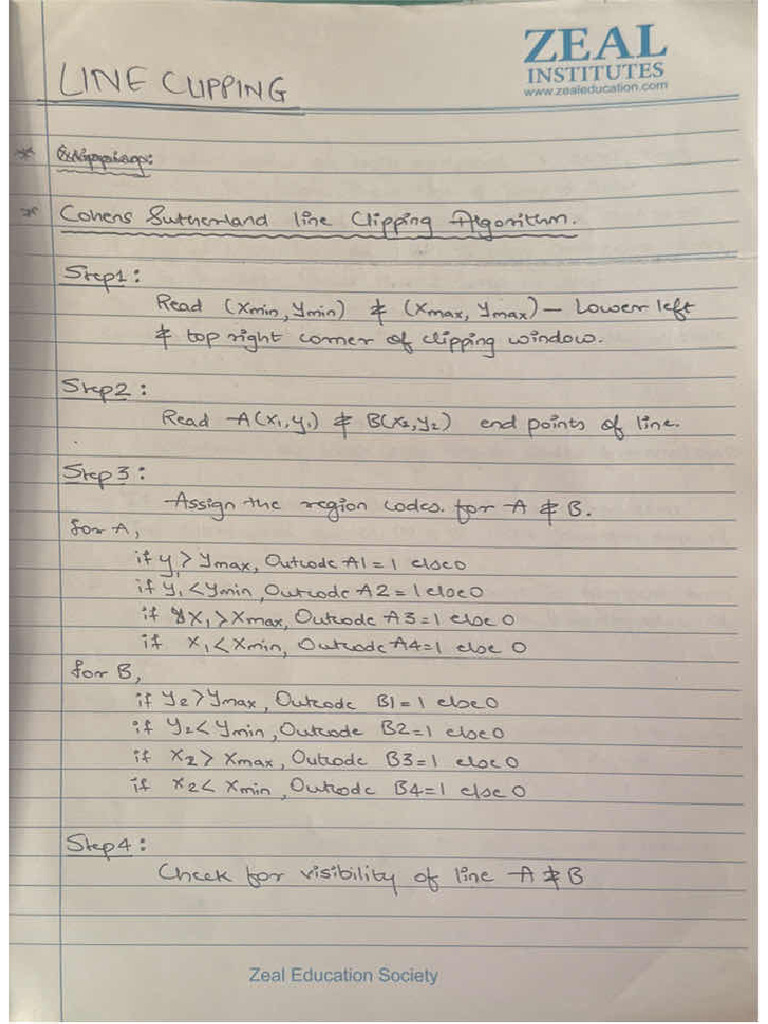 ZEAL
INSTITUTES
www.zealeducation.com
LINE CLIPPING
*
* Cohens Sutherland line Clipping Algorithm.
Step1:
Read (Xmin, Ymin) & (Xmax, Ymax) — Lower left
& top right corner of clipping window.
Step2:
Read A(X1, y1) & B(X2, y2) end points of line.
Step3:
Assign the region codes. for A & B.
for A,
if y1 > Ymax, Outcode A1 = 1 else 0
if Y1 < Ymin, Outcode A2 = 1 else 0
if X1 > Xmax, Outcode A3 = 1 else 0
if X1 < Xmin, Outcode A4 = 1 else 0
for B,
if Y2 > Ymax, Outcode B1 = 1 else 0
if Y2 < Ymin, Outcode B2 = 1 else 0
if X2 > Xmax, Outcode B3 = 1 else 0
if X2 < Xmin, Outcode B4 = 1 else 0
Step4:
Check for visibility of line A & B
Zeal Education Society